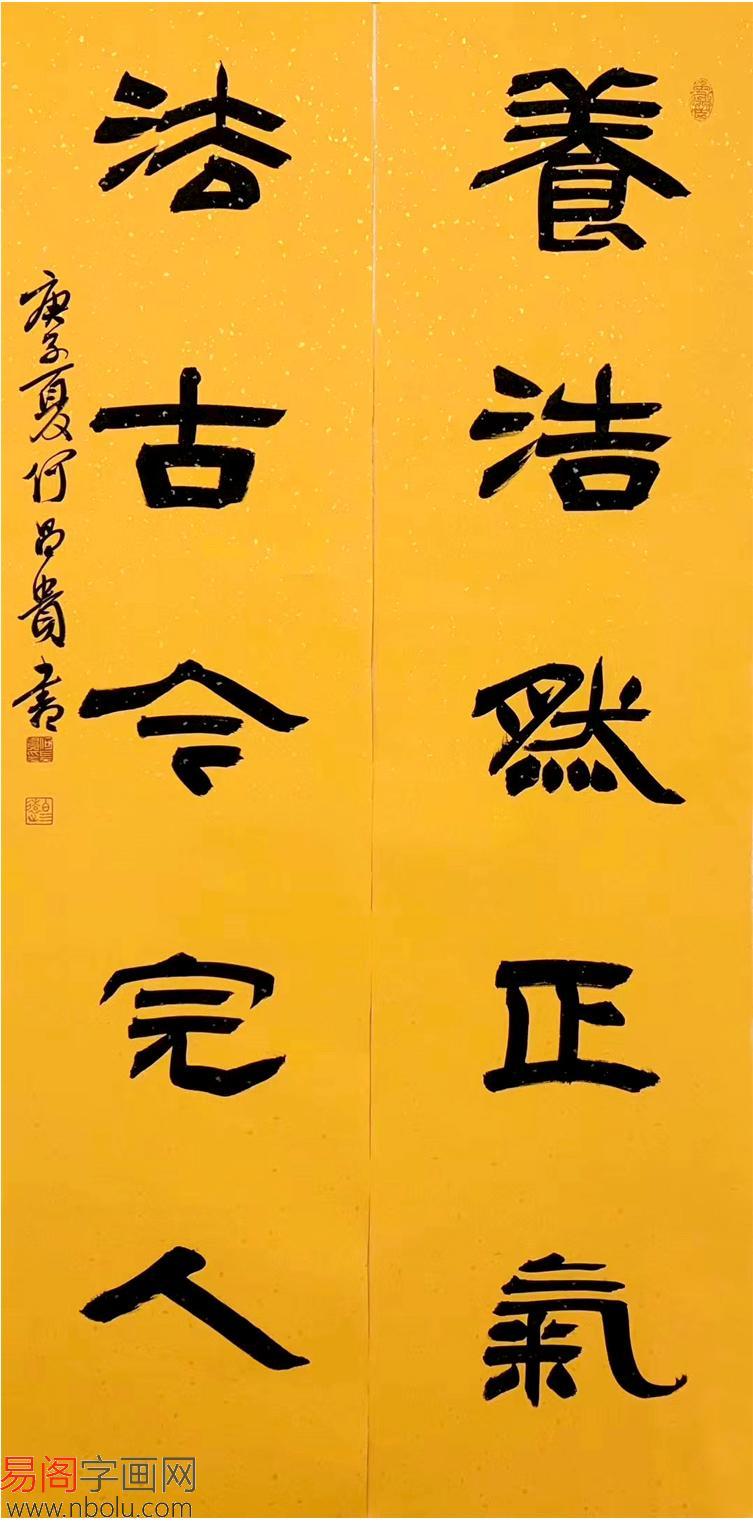 養浩然正氣
法古今完人
庚子夏何昌貴書
易阁字画网
www.nbolu.com